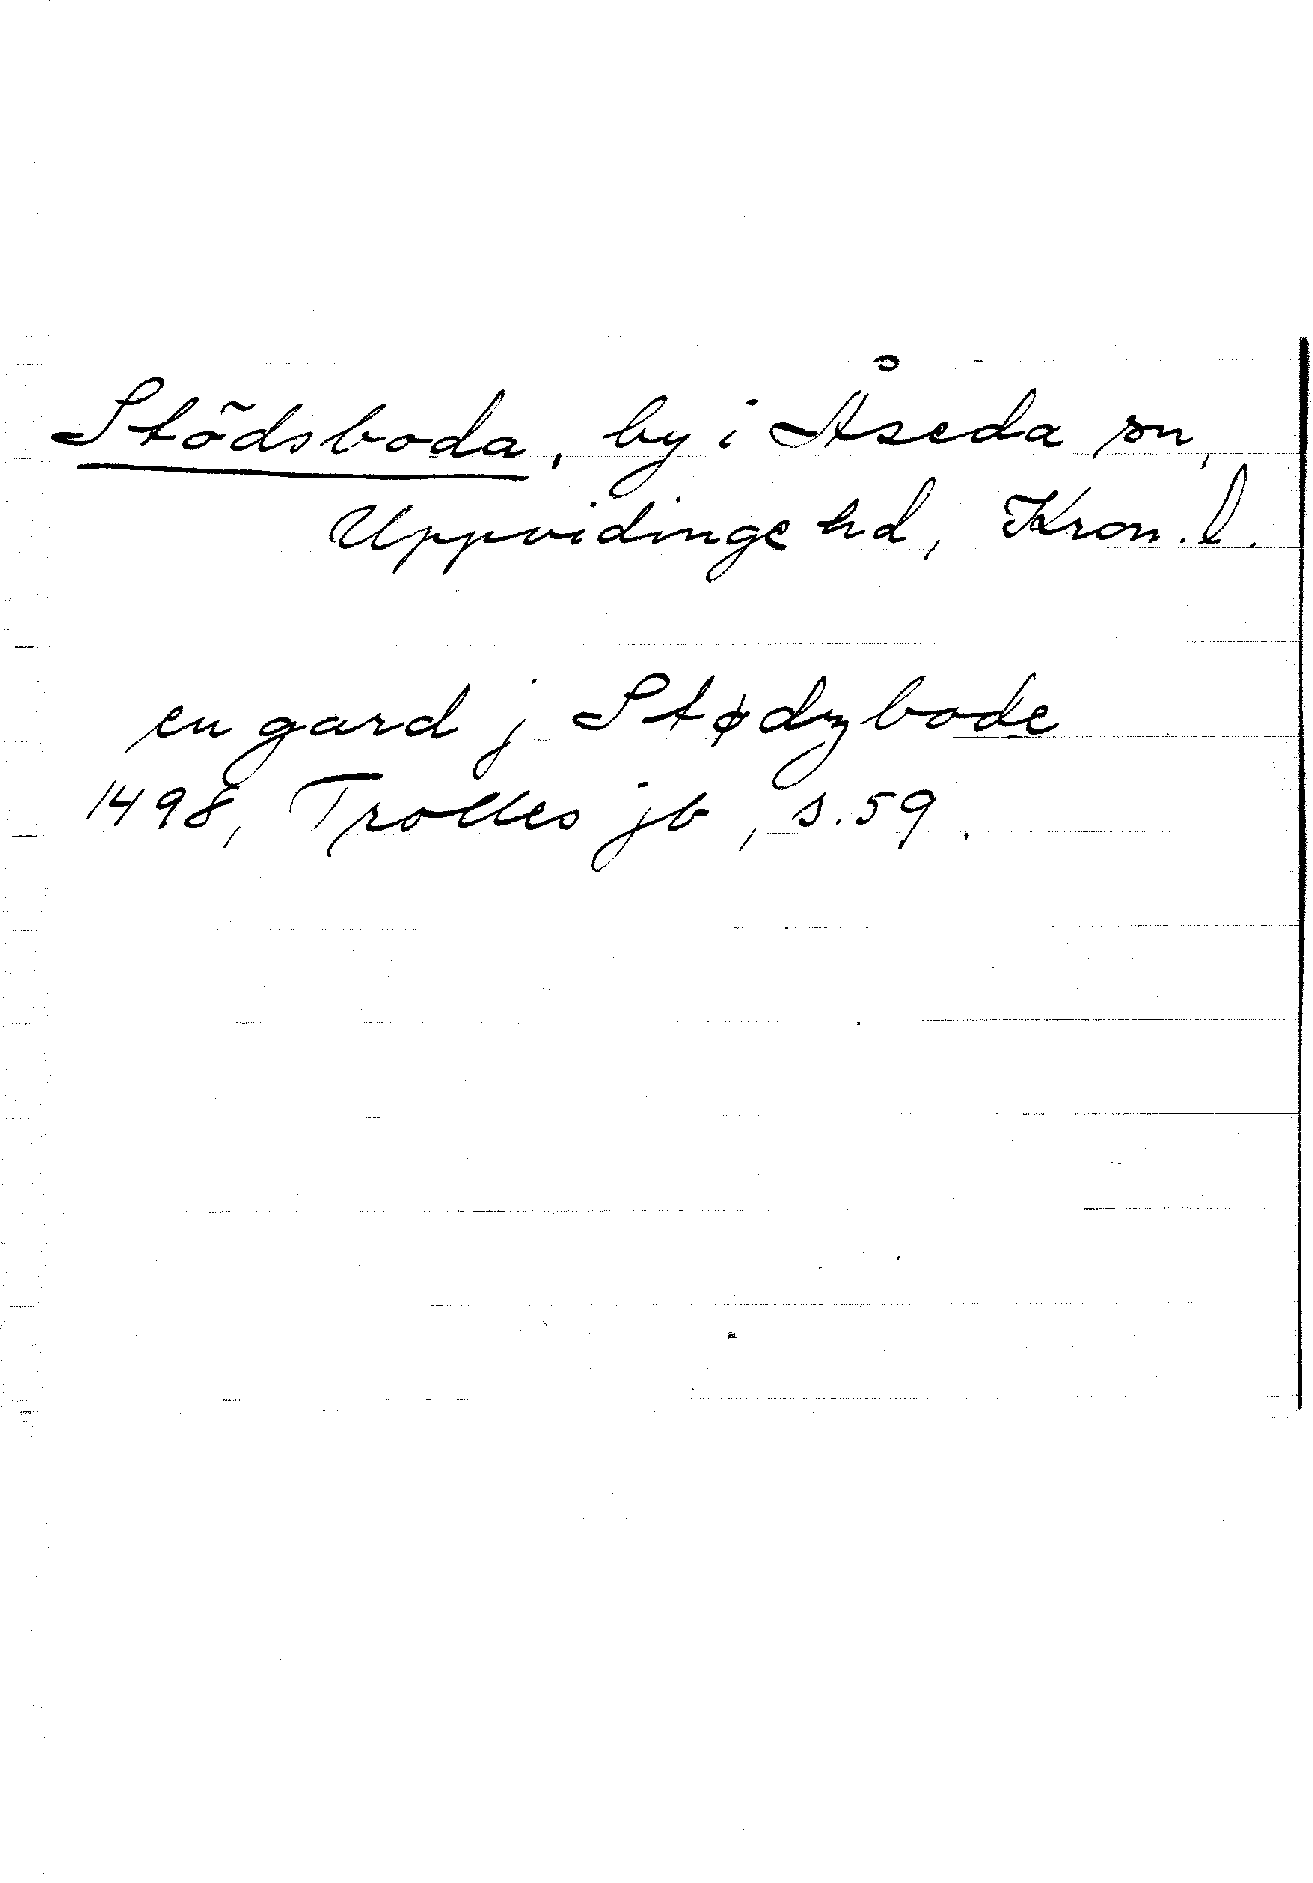 Stödsboda, by i Åseda sn,
Uppvidinge hd, Kron. l.
en gard j Stødzbode
1498, Trolles jb, s. 59.